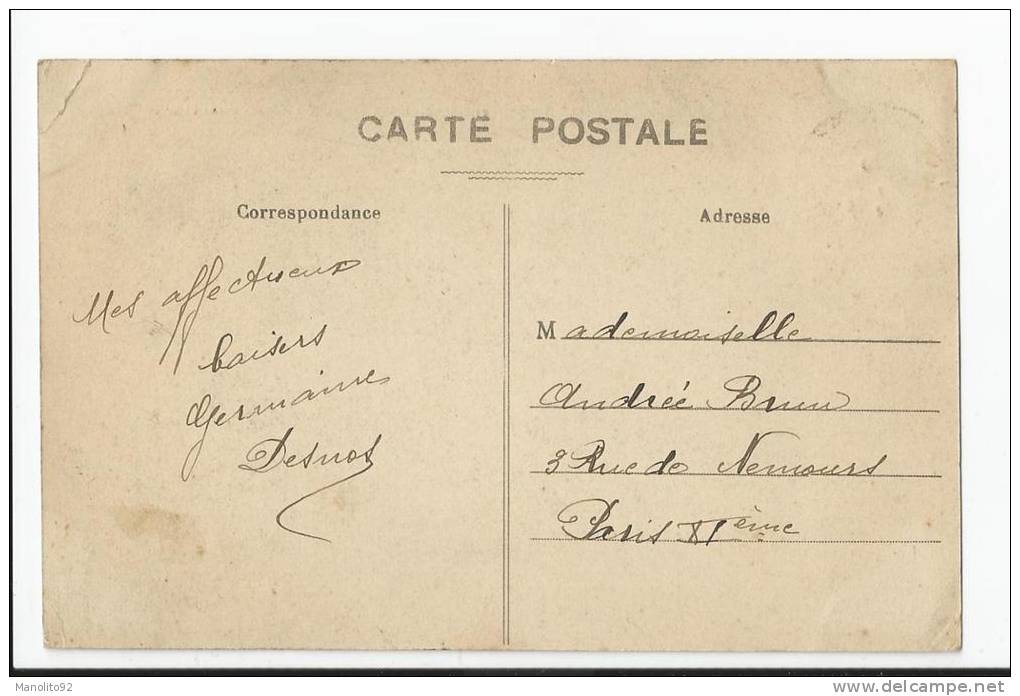 CARTE POSTALE
Correspondance
Mes affectueux
baisers
Germaine
Desnos
Adresse
Mademoiselle
Andrée Brun
3 Rue de Nemours
Paris XIème
Manolito92
www.delcampe.net